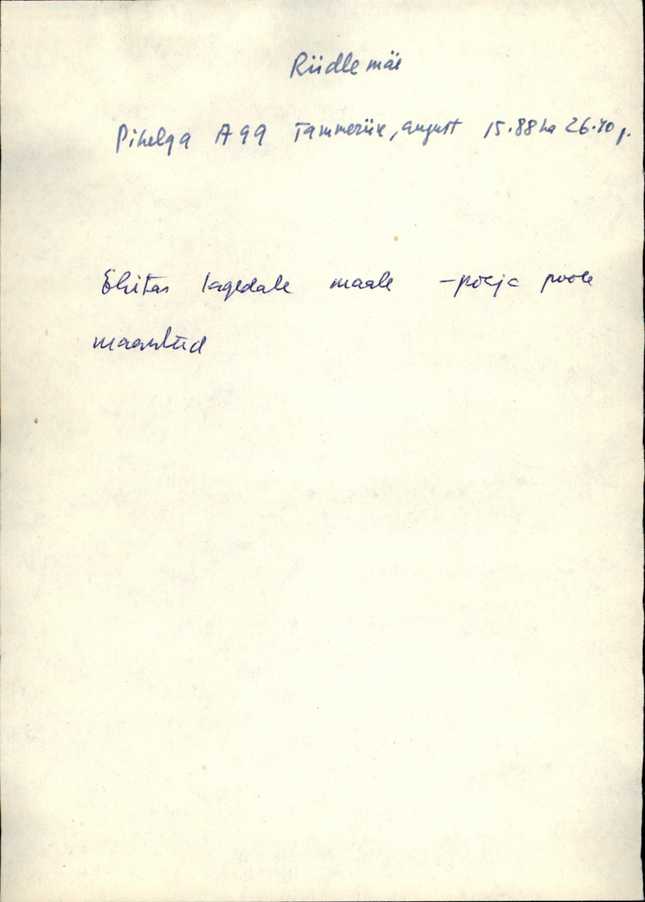 Riidlemäe
Pihelga A99 Tammerüx, august 15.88 ha 26.40 r.
Ehitas lagedale maale - põhja poole
maanteed